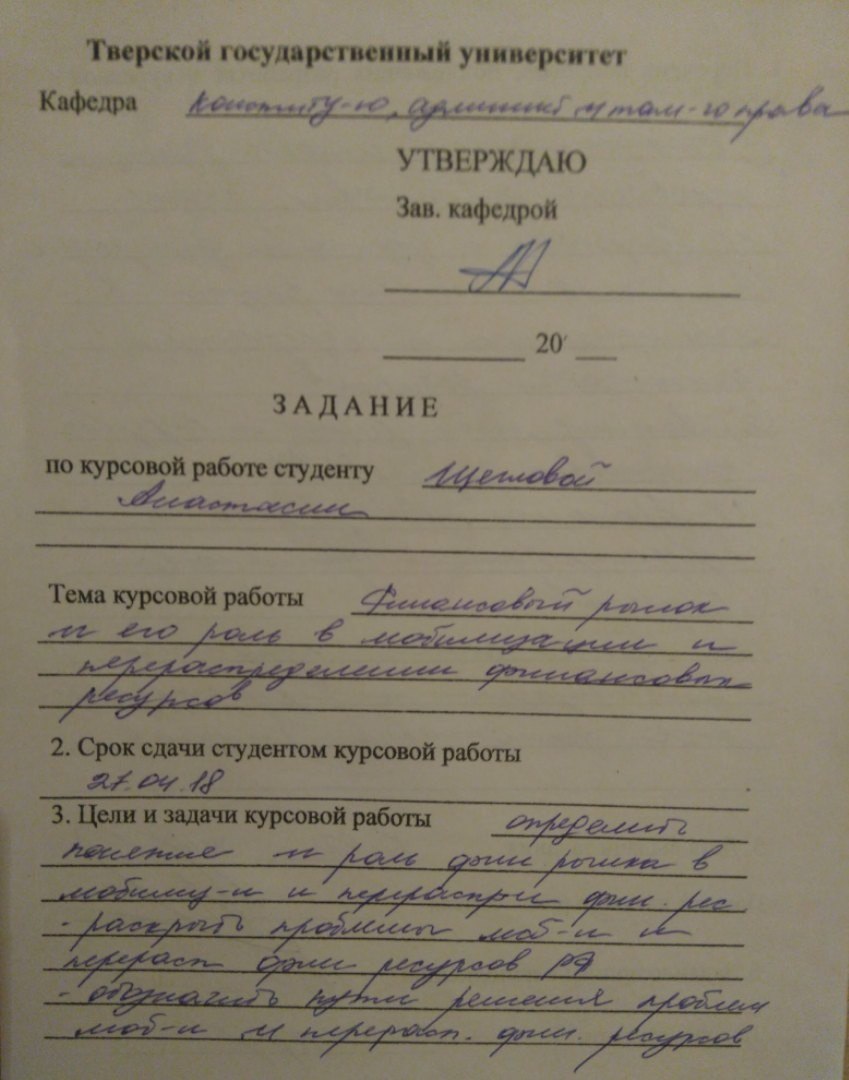 Тверской государственный университет
Кафедра Конститу-го, админист и там-го права
УТВЕРЖДАЮ
Зав. кафедрой
20
ЗАДАНИЕ
по курсовой работе студенту Щегловой
Анастасии
Тема курсовой работы Финансовый рынок
и его роль в мобилизации и
перераспределении финансовых
ресурсов
2. Срок сдачи студентом курсовой работы
27.04.18
3. Цели и задачи курсовой работы определить
понятие и роль фин рынка в
мобилиз-и и перераспр фин. рес
- раскрыть проблемы моб-и и
перерасп фин ресурсов РФ
- обозначить пути решения проблем
моб-и и перерасп. фин. ресурсов